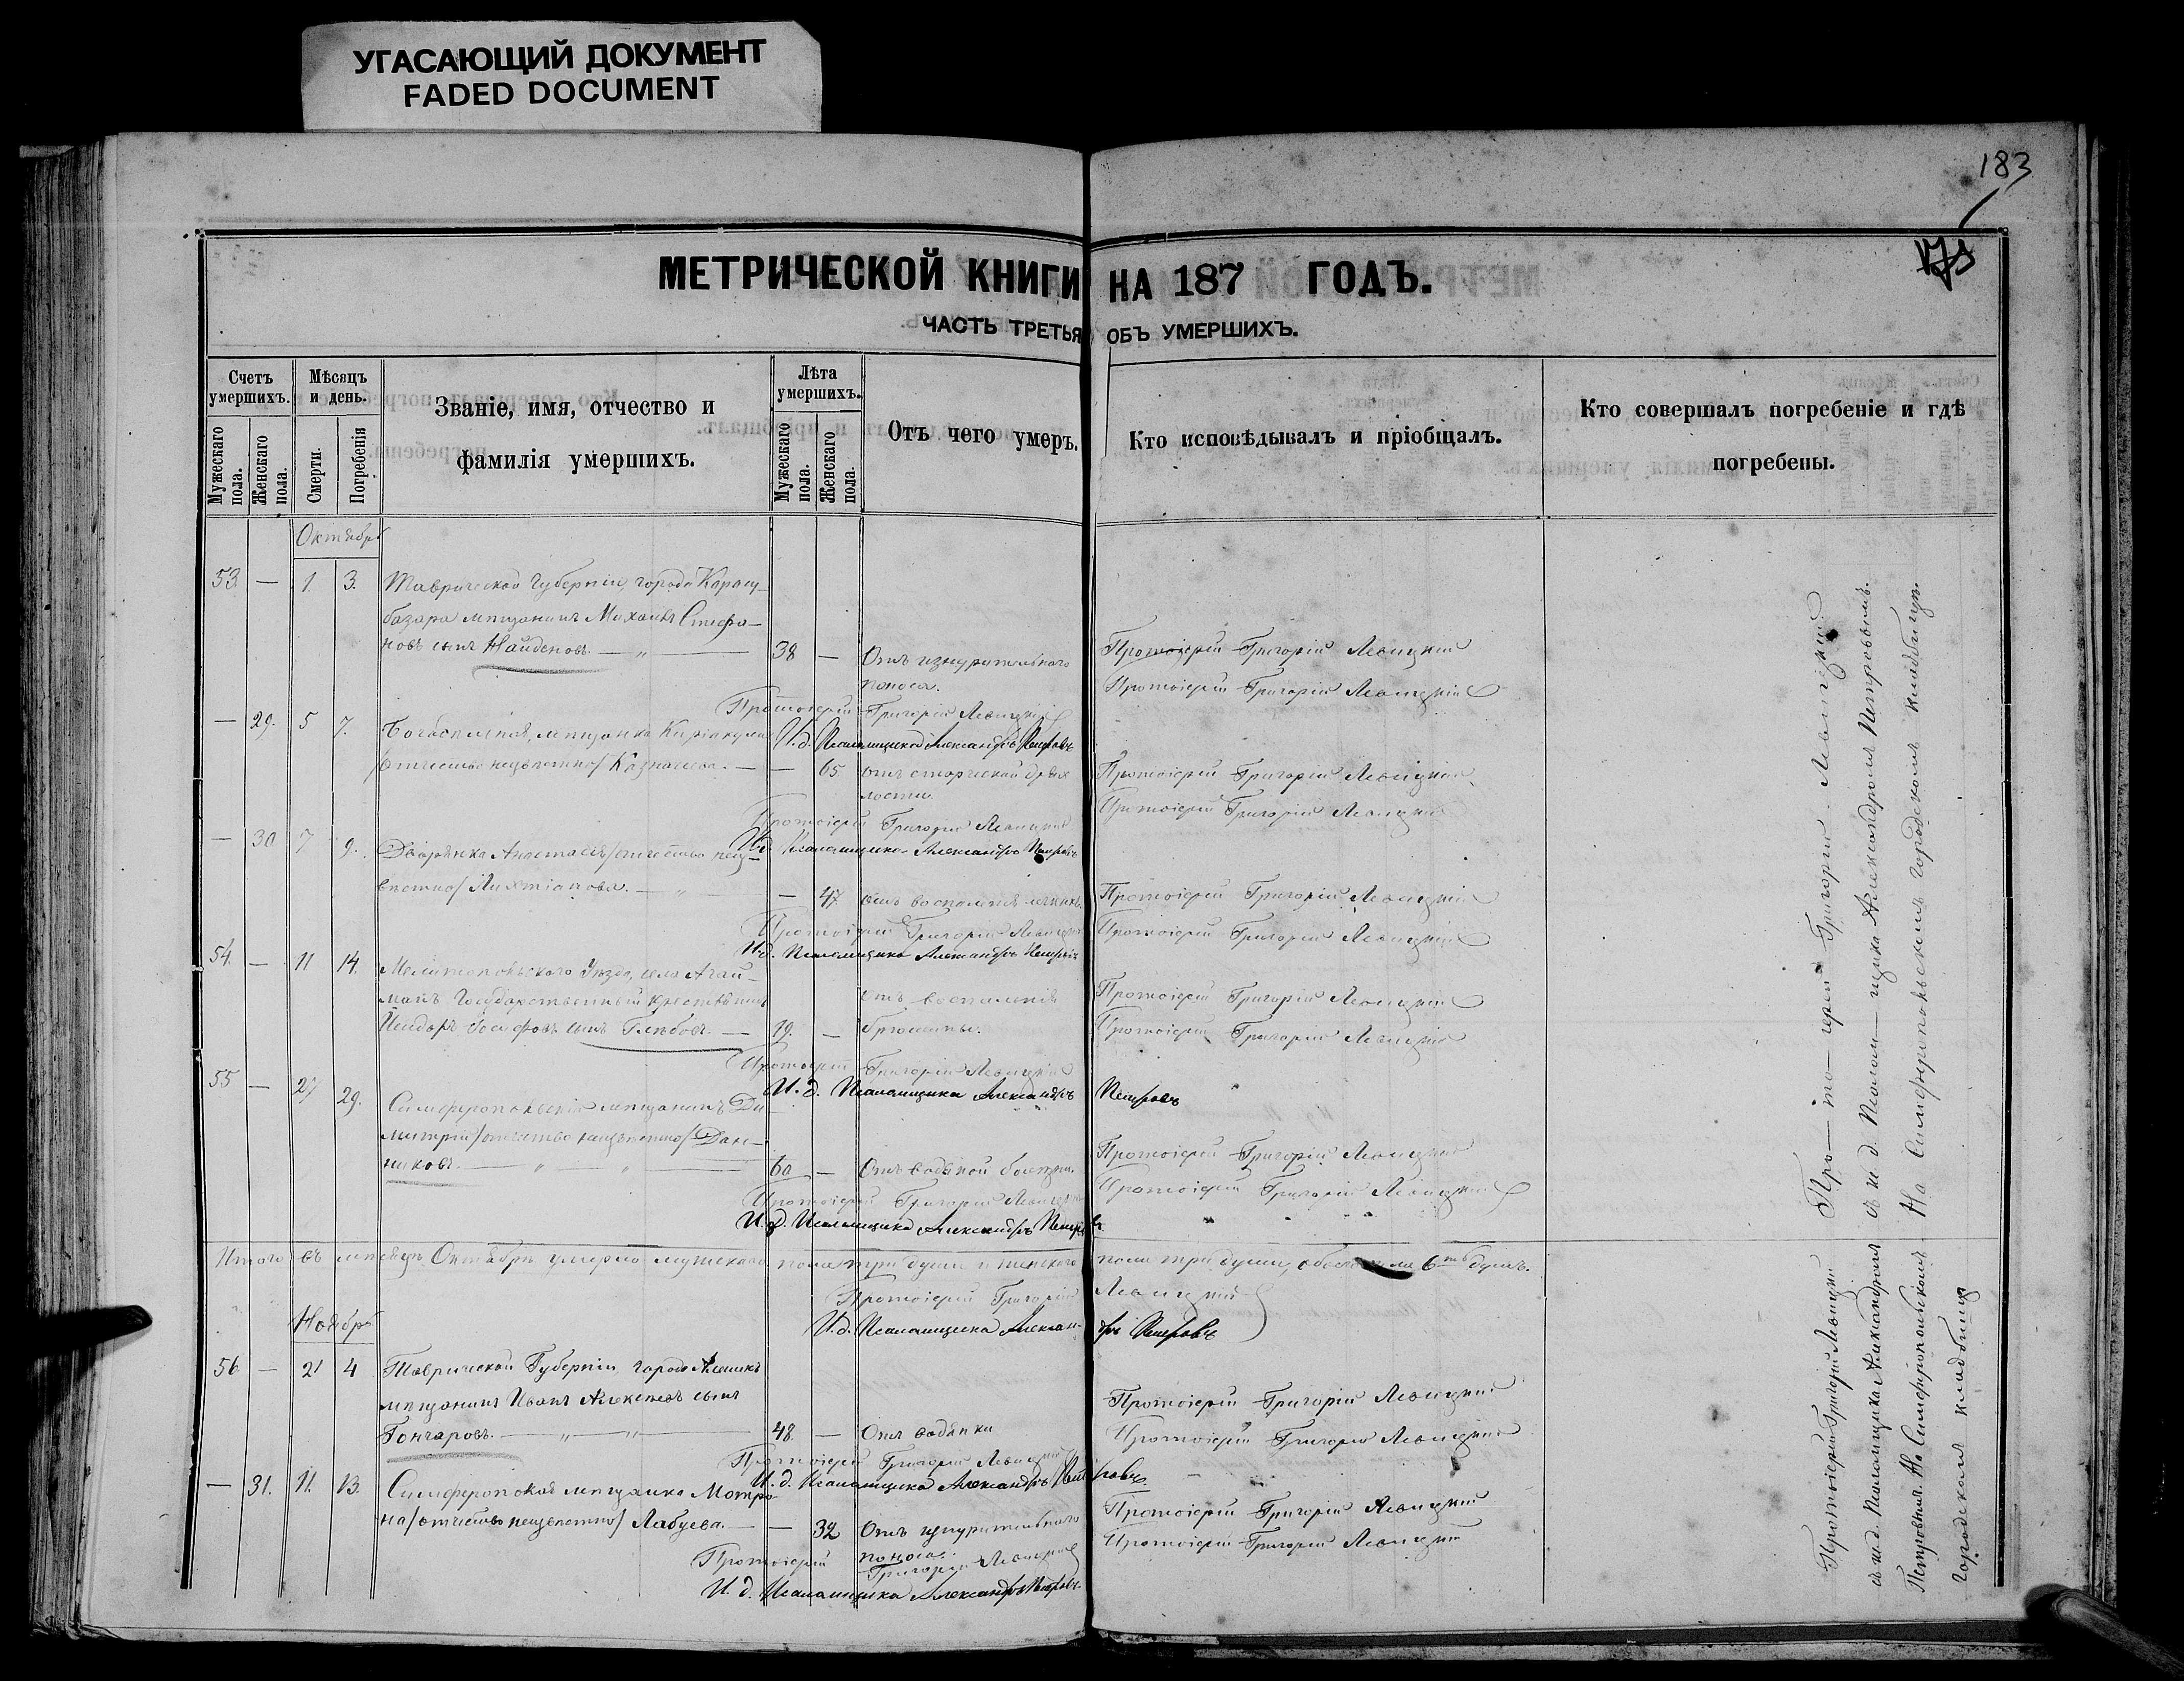 УГАСАЮЩИЙ ДОКУМЕНТ
FADED DOCUMENT
183
МЕТРИЧЕСКОЙ КНИГИ НА 187 ГОДЪ.
ЧАСТЬ ТРЕТЬЯ ОБЪ УМЕРШИХЪ.
Счетъ умершихъ.
Мужескаго пола.
Женскаго пола.
Мѣсяцъ и день.
Смерти.
Погребенія
Званіе, имя, отчество и
фамилія умершихъ.
Лѣта умершихъ.
Мужескаго пола.
Женскаго пола
Отъ чего умеръ.
Кто исповѣдывалъ и пріобщалъ.
Кто совершалъ погребеніе и гдѣ
погребены.
Октябрь
53. — 1. 3. Таврической Губерніи, города Карасу-
базара мѣщанинъ Михаилъ Стефа-
новъ сынъ Найденовъ. — „ — 38 — Отъ изнурительнаго Протоіерей Григорій Левицкій
поноса. Протоіерей Григорій Левицкій
Протоіерей Григорій Левицкій
— 29. 5 7. мѣщанка И. д. Псаломщика Александръ Петровъ
/отчество неизвѣстно/ Казначеева. — — 65 отъ старческой дрях Протоіерей Григорій Левицкій
лости. Протоіерей Григорій Левицкій
Протоіерей Григорій Левицкій
— 30 7 9. Дворянка Анастасія /отчество неиз- И. д. Псаломщика Александръ Петровъ
вѣстно/ — „ — — 47 отъ воспаленія легкихъ. Протоіерей Григорій Левицкій
Протоіерей Григорій Левицкій Протоіерей Григорій Левицкій
54. — 11 14. И. д. Псаломщика Александръ Петровъ
Мелитопольскаго Уѣзда, села Агай-
манъ Государственный крестьянинъ отъ воспаленія Протоіерей Григорій Левицкій
сынъ Глѣбовъ. — 19. — брюшины. Протоіерей Григорій Левицкій
Протоіерей Григорій Левицкій
55 — 27 29. И. д. Псаломщика Александръ Петровъ
Симферопольскій мѣщанинъ Ди-
митрій /отчество неизвѣстно/ Дан-
никовъ. — „ „ — 60 — Отъ водяной болѣзни. Протоіерей Григорій Левицкій
Протоіерей Григорій Левицкій Протоіерей Григорій Левицкій
И. д. Псаломщика Александръ Петровъ
Итого въ мѣсяцѣ Октябрѣ умерло мужескаго пола три души и женскаго пола три души, обоего пола 6ть душъ.
Протоіерей Григорій Левицкій
И. д. Псаломщика Александръ Петровъ
Ноябрь
56 — 21 4 Таврической Губерніи, города Алешекъ
мѣщанинъ Иванъ Алексѣевъ сынъ Протоіерей Григорій Левицкій
Гончаровъ. — „ — „ — 48. — Отъ водянки Протоіерей Григорій Левицкій
Протоіерей Григорій Левицкій
— 31. 11. 13. И. д. Псаломщика Александръ Петровъ
Симферопольская мѣщанка Матро-
на /отчество неизвѣстно/ Лабуева. — — 32 Отъ изнурительнаго Протоіерей Григорій Левицкій
поноса. Протоіерей Григорій Левицкій
Протоіерей Григорій Левицкій
И. д. Псаломщика Александръ Петровъ
Про—то—іерей Григорій Левицкій
съ и. д. Псалом—щика Александромъ Петровымъ.
На Симферопольскомъ городскомъ кладбищѣ.
Протоіерей Григорій Левицкій
съ и. д. Псаломщика Александромъ
Петровымъ. На Симферопольскомъ
городскомъ кладбищѣ